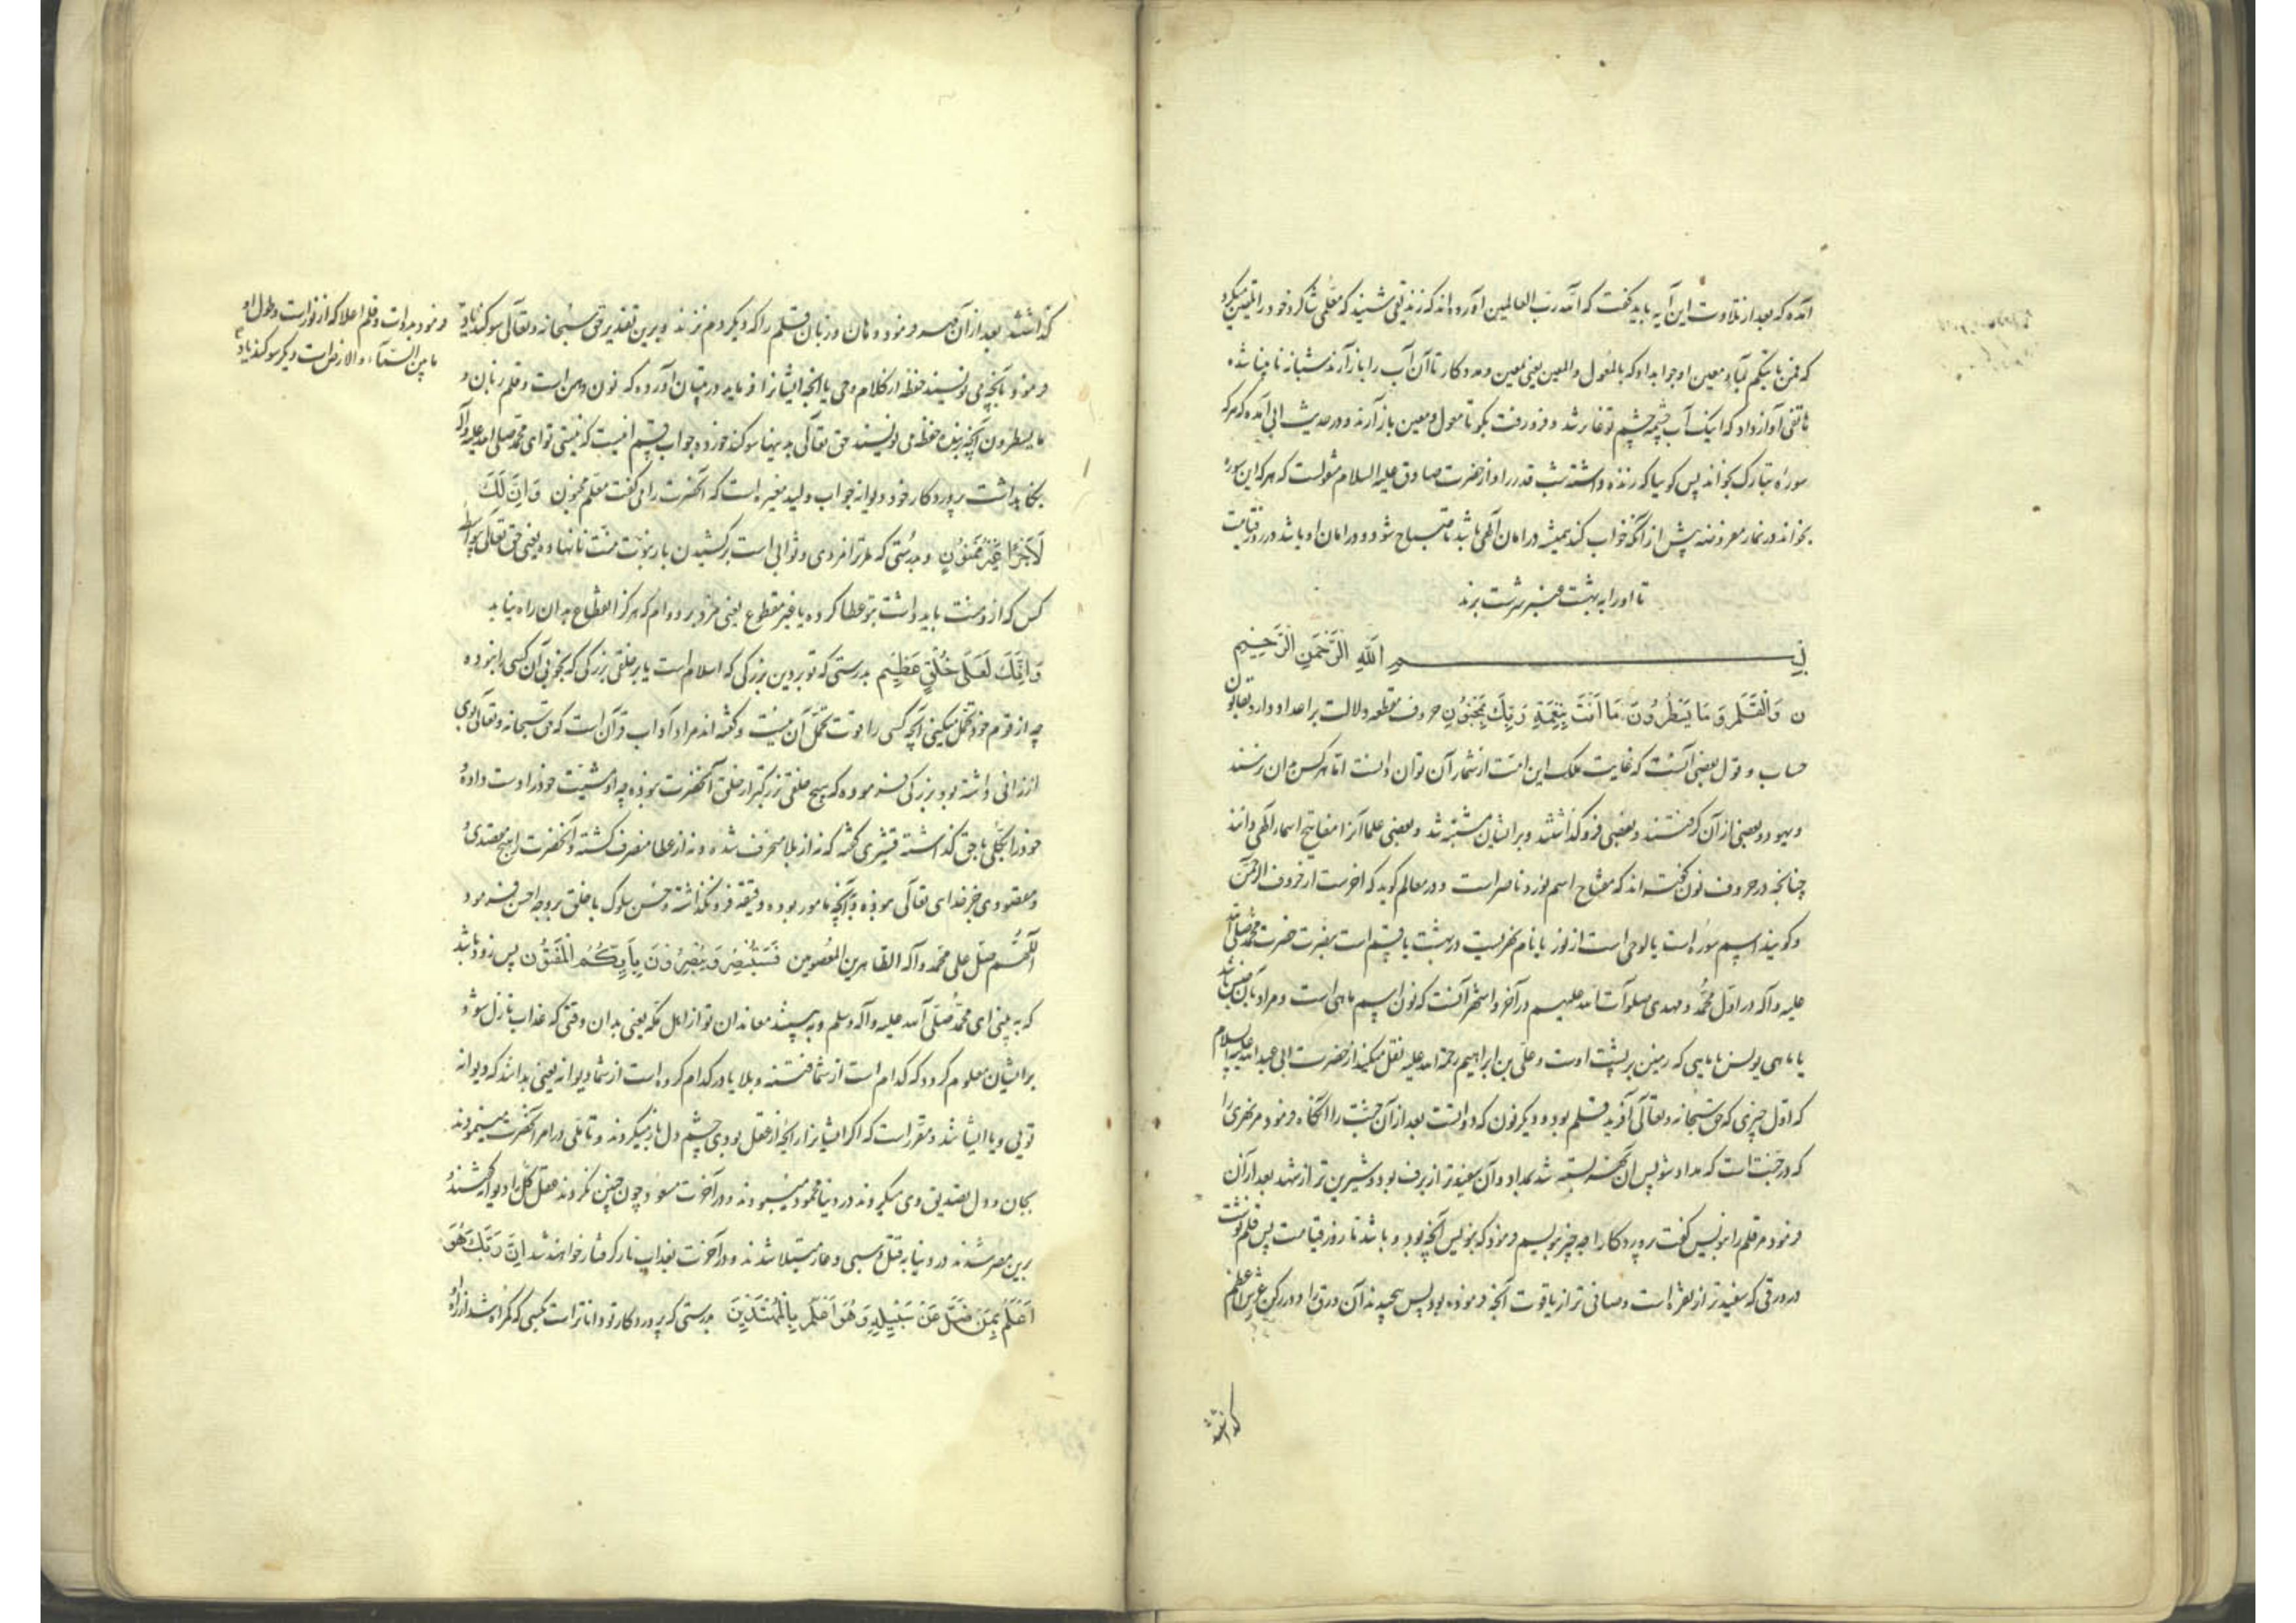 آمده که بعد از تلاوت این آیه باید گفت که الله رب العالمین آورده اند که زندیقی شنید که معلمی شاگرد خود را تلقین میکرد
که فمن یاتیکم بماء معین او جواب داد که بالمعول والمعین یعنی بمعین ومددکار تا آن آب را باز آرند شبانه نابینا شده
هاتفی آواز داد که اینک آب چشمه چشم تو غایر شد و فرو رفت بگو تا معول و معین باز آرند و در حدیث ابی آمده که هر که
سوره تبارک بخواند پس کوییا که زنده داشته شب قدر را و از حضرت صادق علیه السلام منقولست که هر که این سوره
بخواند در نماز مفروضه پیش از آنکه خواب کند همیشه در امان الهی باشد تا صباح شود و در امان او باشد در روز قیامت
تا او را به بهشت عنبر سرشت برند
بسم الله الرحمن الرحیم
ن وَالْقَلَمِ وَمَا يَسْطُرُونَ مَا أَنْتَ بِنِعْمَةِ رَبِّكَ بِمَجْنُونٍ حروف مقطعه دلالت بر اعداد دارد بقانون
حساب و قول بعضی آنست که غایت ملک این امت از شمار آن توان دانست اما هر کس بدان نرسند
ویهود و بعضی از آن گرفتند و بعضی فرو گذاشتند و بر ایشان مشتبه شد و بعضی علما آنرا مفاتیح اسماء الهی دانند
چنانچه در حروف نون گفته اند که مفتاح اسم نور و ناصر است و در معالم گوید که آخرست از حروف الرحمن
و گویند اسم سوره است یا لوحی است از نور یا نام نهریست در بهشت یا قسم است بنصرت حضرت محمد صلی الله
علیه وآله در اول محمد و مهدی صلوات الله علیهم در آخر و اشهر آنست که نون اسم ماهی است و مراد بآن جنس باشد
یا ماهی یونس یا ماهیی که زمین بر پشت اوست و علی بن ابراهیم رحمة الله علیه نقل میکند از حضرت ابی عبدالله علیه السلام
که اول چیزی که حق سبحانه وتعالی آفرید قلم بود و دیگر نون که دواتست بعد از آن جنت را آنگاه فرمود مر نهری را
که در جنت است که مداد شو پس آن نهر بسته شد بمداد و آن سفیدتر از برف بود و شیرین تر از شهد بعد از آن
فرمود مر قلم را بنویس گفت پروردگارا چه چیز بنویسم فرمود که بنویس آنچه بود و باشد تا روز قیامت پس قلم نوشت
در ورقی که سفیدتر از نقره است و صافی تر از یاقوت آنچه فرموده بود پس پیچیدند آن ورق را و در رکن عرش اعظم
گذاشتند
گذاشتند بعد از آن مهر فرمود دهان و زبان قلم را که دیگر دم نزند و برین تقدیر حق سبحانه وتعالی سوگند یاد
فرمود بدوات و قلم اعلا که از نور است و طول او
ما بین السماء والارض است و دیگر سوگند یاد
فرمود بآنچه می نویسند حفظه از کلام وحی یا آنچه ایشانرا فرماید در تبیان آورده که نون دهن است و قلم زبان و
ما یسطرون آنچه بر بنده حفظه می نویسند حق تعالی بدینها سوگند خورد و جواب قسم اینست که نیستی تو ای محمد صلی الله علیه وآله
بنگاهداشت پروردگار خود دیوانه جواب ولید مغیره است که آنحضرت را می گفت معلم مجنون وَإِنَّ لَكَ
لَأَجْرًا غَيْرَ مَمْنُونٍ و بدرستی که مر ترا مزدی و ثوابی است بر کشیدن بار نبوت منت نانهاده یعنی حق تعالی بی واسطه
کس که از و منت باید داشت بتو عطا کرده یا غیر مقطوع یعنی مزد بر دوام که هرگز انقطاع بدان راه نیابد
وَإِنَّكَ لَعَلَى خُلُقٍ عَظِيمٍ بدرستی که تو بر دین بزرگی که اسلام است یا بر خلقی بزرگی که بخوبی آن کسی را نبوده
چه از قوم خود تحمل میکنی آنچه کسی را قوت تحمل آن نیست و گفته اند مراد آداب قرآن است که حق سبحانه وتعالی بوی
ارزانی داشته بود بزرگی فرموده که هیچ خلقی بزرگتر از خلق آنحضرت نبوده چه او مشیت خود را دست داده
خود را بکلی با حق گذاشته که نه از بلا منحرف شده و نه از عطا منصرف گشته و آنحضرت را هیچ مقصدی
و مقصودی جز خدای تعالی نبوده و بآنچه مامور بوده دقیقه فرو نگذاشته و حسن سلوک با خلق بر وجه احسن فرمود
اللهم صل علی محمد وآله الطاهرین المعصومین فَسَتُبْصِرُ وَيُبْصِرُونَ بِأَيِّكُمُ الْمَفْتُونُ پس زود باشد
که به بینی ای محمد صلی الله علیه وآله وسلم و به بینند معاندان تو از اهل مکه یعنی بدان وقتی که عذاب نازل شود
بر ایشان معلوم گردد که کدام است از شما فتنه و بلا یا در کدام گروه است از شما دیوانه یعنی بدانند که دیوانه
تویی و یا ایشانند و مقرر است که اگر ایشانرا رایحه از عقل بودی چشم دل باز میکردند و تاملی در امر آنحضرت مینمودند
بجان و دل تصدیق وی میکردند در دنیا محمود میبودند و در آخرت مسعود چون چنین نکردند عقل کل را دیوانه گفتند و
برین مصر شدند در دنیا به قتل و سبی و عار مبتلا شدند و در آخرت بعذاب نار گرفتار خواهند شد إِنَّ رَبَّكَ هُوَ
أَعْلَمُ بِمَنْ ضَلَّ عَنْ سَبِيلِهِ وَهُوَ أَعْلَمُ بِالْمُهْتَدِينَ بدرستی که پروردگار تو داناتر است بکسی که گمراه شد از راه